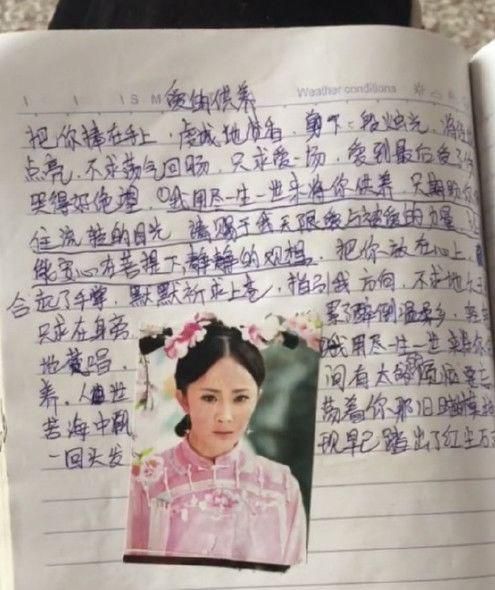 S M Weather conditions
爱的供养
把你捧在手上，虔诚地焚香，剪下一段烛光，将经
点亮，不求荡气回肠，只求爱一场，爱到最后受了
哭得好绝望，我用尽一生一世来将你供养，只期盼你
住流转的目光，请赐于我无限爱与被爱的力量，
能安心在菩提下静静的观想。把你放在心上，
合起了手掌，默默祈求上苍，指引我方向，不求地久
只求在身旁 累了醉倒温柔乡，
地黄昌。 我用尽一生一世来将你
养。人世 间有太的烦恼要忘
苦海中飘 荡着你那旧时
一回头发 现早已踏出了红尘万